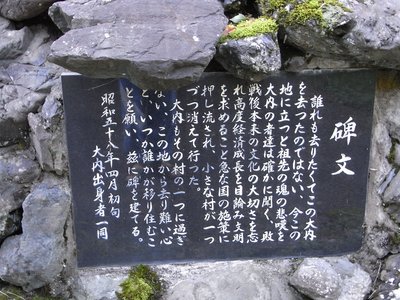 碑文
誰れも去りたくてこの大内
を去つたのではない、今この
地に立つと祖先の魂の悲嘆を
大内の者達は確かに聞く。敗
戦後本来の文化の大切さを忘
れ高度経済成長を目論み文明
を求めること急な国の施策に
押し流され、小さな村が一つ
づつ消えて行った。
大内もその村の一つに過ぎ
ない。この地から去り難い心
と、いつか誰かが移り住むこ
とを願い、茲に碑を建てる。
昭和五十八年四月初旬
大内出身者一同